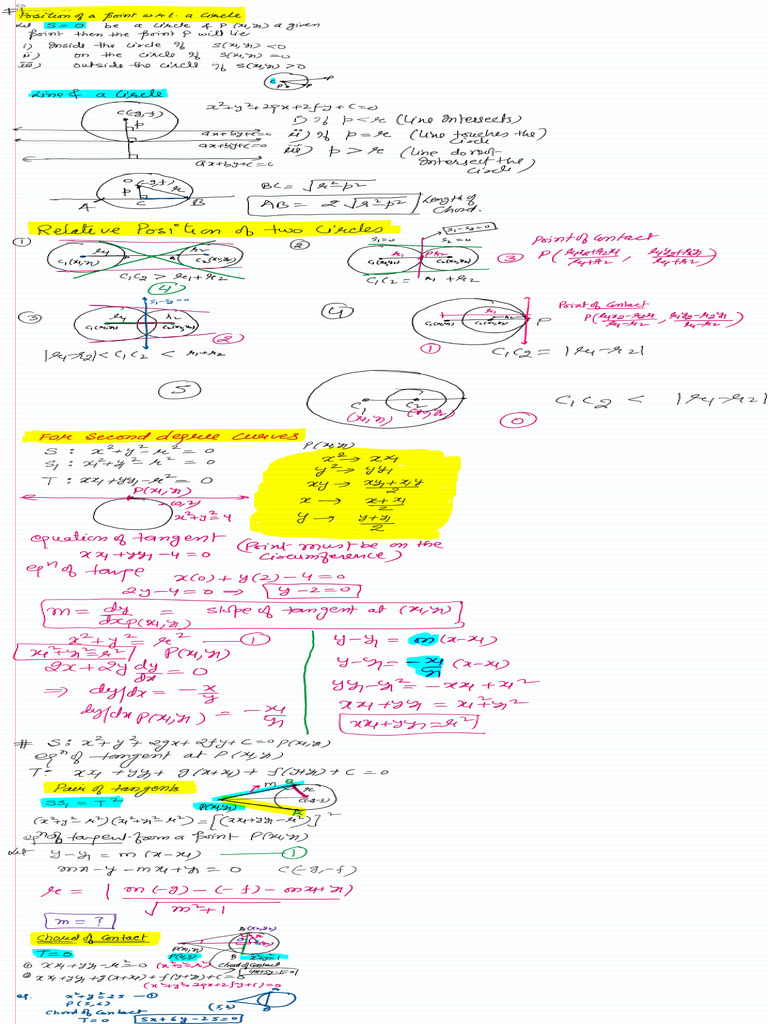 # Position of a point w.r.t. a Circle
Let S=0 be a circle & P(x₁,y₁) a given
point then the point P will lie
i) Inside the circle if S(x₁,y₁) <0
ii) on the circle if S(x₁,y₁) =0
iii) outside the circle if S(x₁,y₁) >0
C P P
Line & a Circle
x²+y²+2gx+2fy+c=0
C(-g,-f)
P
i) If p<r (Line Intersects)
ax+by+c=0
ii) If p=r (Line touches the circle)
ax+by+c=0
iii) p>r (Line do not intersect the circle)
ax+by+c=0
O(-g,-f)
r
P
A C B
BC = √r²-p²
AB = 2√r²-p² Length of chord.
Relative Position of two Circles
① r₁ r₂ C₁(x₁,y₁) C₂(x₂,y₂)
C₁C₂ > r₁+r₂
④
② S₁=0 S₂=0 S₁-S₂=0
r₁ P r₂ C₁(x₁,y₁) C₂(x₂,y₂)
C₁C₂ = r₁+r₂
③ Point of Contact
P(r₁x₂+r₂x₁/r₁+r₂, r₁y₂+r₂y₁/r₁+r₂)
③ S₁-S₂=0
r₁ r₂ C₁(x₁,y₁) C₂(x₂,y₂)
|r₁-r₂| < C₁C₂ < r₁+r₂
②
④ r₁ r₂ P
①
C₁C₂ = |r₁-r₂|
Point of Contact
P(r₁x₂-r₂x₁/r₁-r₂, r₁y₂-r₂y₁/r₁-r₂)
⑤ C₁ C₂
(x₁,y₁) (x₂,y₂)
0
C₁C₂ < |r₁-r₂|
For Second degree curves
S : x²+y²-r²=0
S₁ : x₁²+y₁²-r²=0
T : xx₁+yy₁-r²=0
P(x₁,y₁)
x² → xx₁
y² → yy₁
xy → xy₁+x₁y/2
x → x+x₁/2
y → y+y₁/2
P(x₁,y₁)
(0,2)
x²+y²=4
equation of tangent (Point must be on the circumference)
xx₁+yy₁-4=0
eqⁿ of tangent
x(0)+y(2)-4=0
2y-4=0 → y-2=0
m = dy/dx P(x₁,y₁) = slope of tangent at (x₁,y₁)
x²+y²=r² ①
x₁²+y₁²=r² P(x₁,y₁)
2x+2y dy/dx=0
⇒ dy/dx = -x/y
dy/dx P(x₁,y₁) = -x₁/y₁
y-y₁ = m(x-x₁)
y-y₁ = -x₁/y₁ (x-x₁)
yy₁-y₁² = -xx₁+x₁²
xx₁+yy₁ = x₁²+y₁²
xx₁+yy₁=r²
# S: x²+y²+2gx+2fy+c=0 P(x₁,y₁)
eqⁿ of tangent at P(x₁,y₁)
T: xx₁+yy₁+g(x+x₁)+f(y+y₁)+c=0
Pair of tangents
SS₁=T²
P(x₁,y₁) m Q r C(-g,-f) R
(x²+y²-r²)(x₁²+y₁²-r²)=[(xx₁+yy₁-r²)]²
eqⁿ of tangent from a point P(x₁,y₁)
Let y-y₁=m(x-x₁) ①
mx-y-mx₁+y₁=0 C(-g,-f)
r = | m(-g)-(-f)-mx₁+y₁) / √m²+1
m=?
Chord of Contact
T=0
P(x₁,y₁)
B
Chord of Contact
① xx₁+yy₁-r²=0 (x²+y²=r²)
② xx₁+yy₁+g(x+x₁)+f(y+y₁)+c=0
(x²+y²+2gx+2fy+c)=0
eg. x²+y²=25 ①
P(5,6)
Chord of Contact
T=0 5x+6y-25=0
(5,6) A B